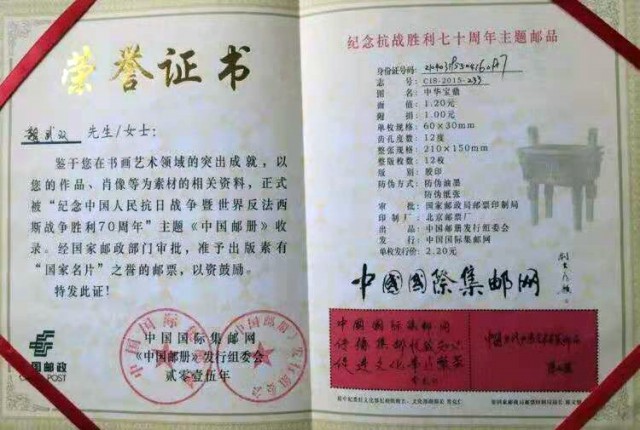 荣誉证书
先生/女士:
鉴于您在书画艺术领域的突出成就,以
您的作品、肖像等为素材的相关资料,正式
被“纪念中国人民抗日战争暨世界反法西
斯战争胜利70周年”主题《中国邮册》收
录。经国家邮政部门审批,准予出版素有
“国家名片”之誉的邮票,以资鼓励。
特发此证!
中国邮政
CHINA POST
中国国际集邮网
《中国邮册》发行组委会
贰零壹伍年
纪念抗战胜利七十周年主题邮品
身份证号码:
志号: CIS-2015-233
图名: 中华宝鼎
面值: 1.20元
附捐: 1.00元
单枚规格: 60×30mm
齿孔度数: 12度
整张规格: 210×150mm
整版枚数: 12枚
版别: 胶印
防伪方式: 防伪油墨
防伪纸张
审批: 国家邮政局邮票印制局
印制厂: 北京邮票厂
出品: 中国邮册发行组委会
发行: 中国国际集邮网
单枚发行价: 2.20元
中国国际集邮网
中国国际集邮网
传播集邮收藏知识
促进文化事业繁荣